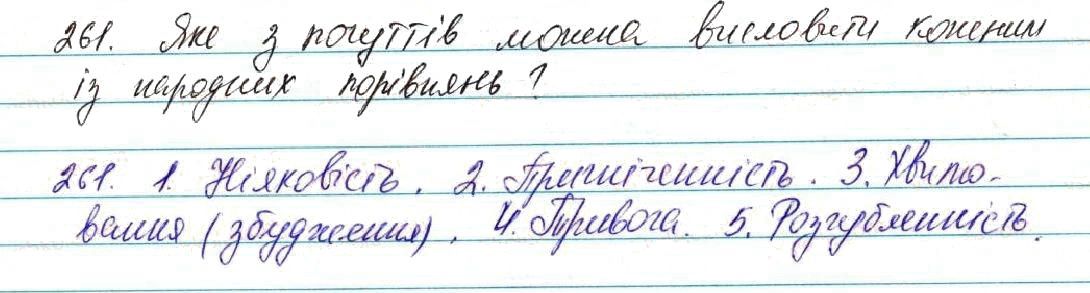 261. Яке з почуттів можна висловити кожним
із народних порівнянь?
261. 1. Ніяковість. 2. Пригніченність. 3. Хвилю-
вання (збудження). 4. Тривога. 5. Розгубленність.